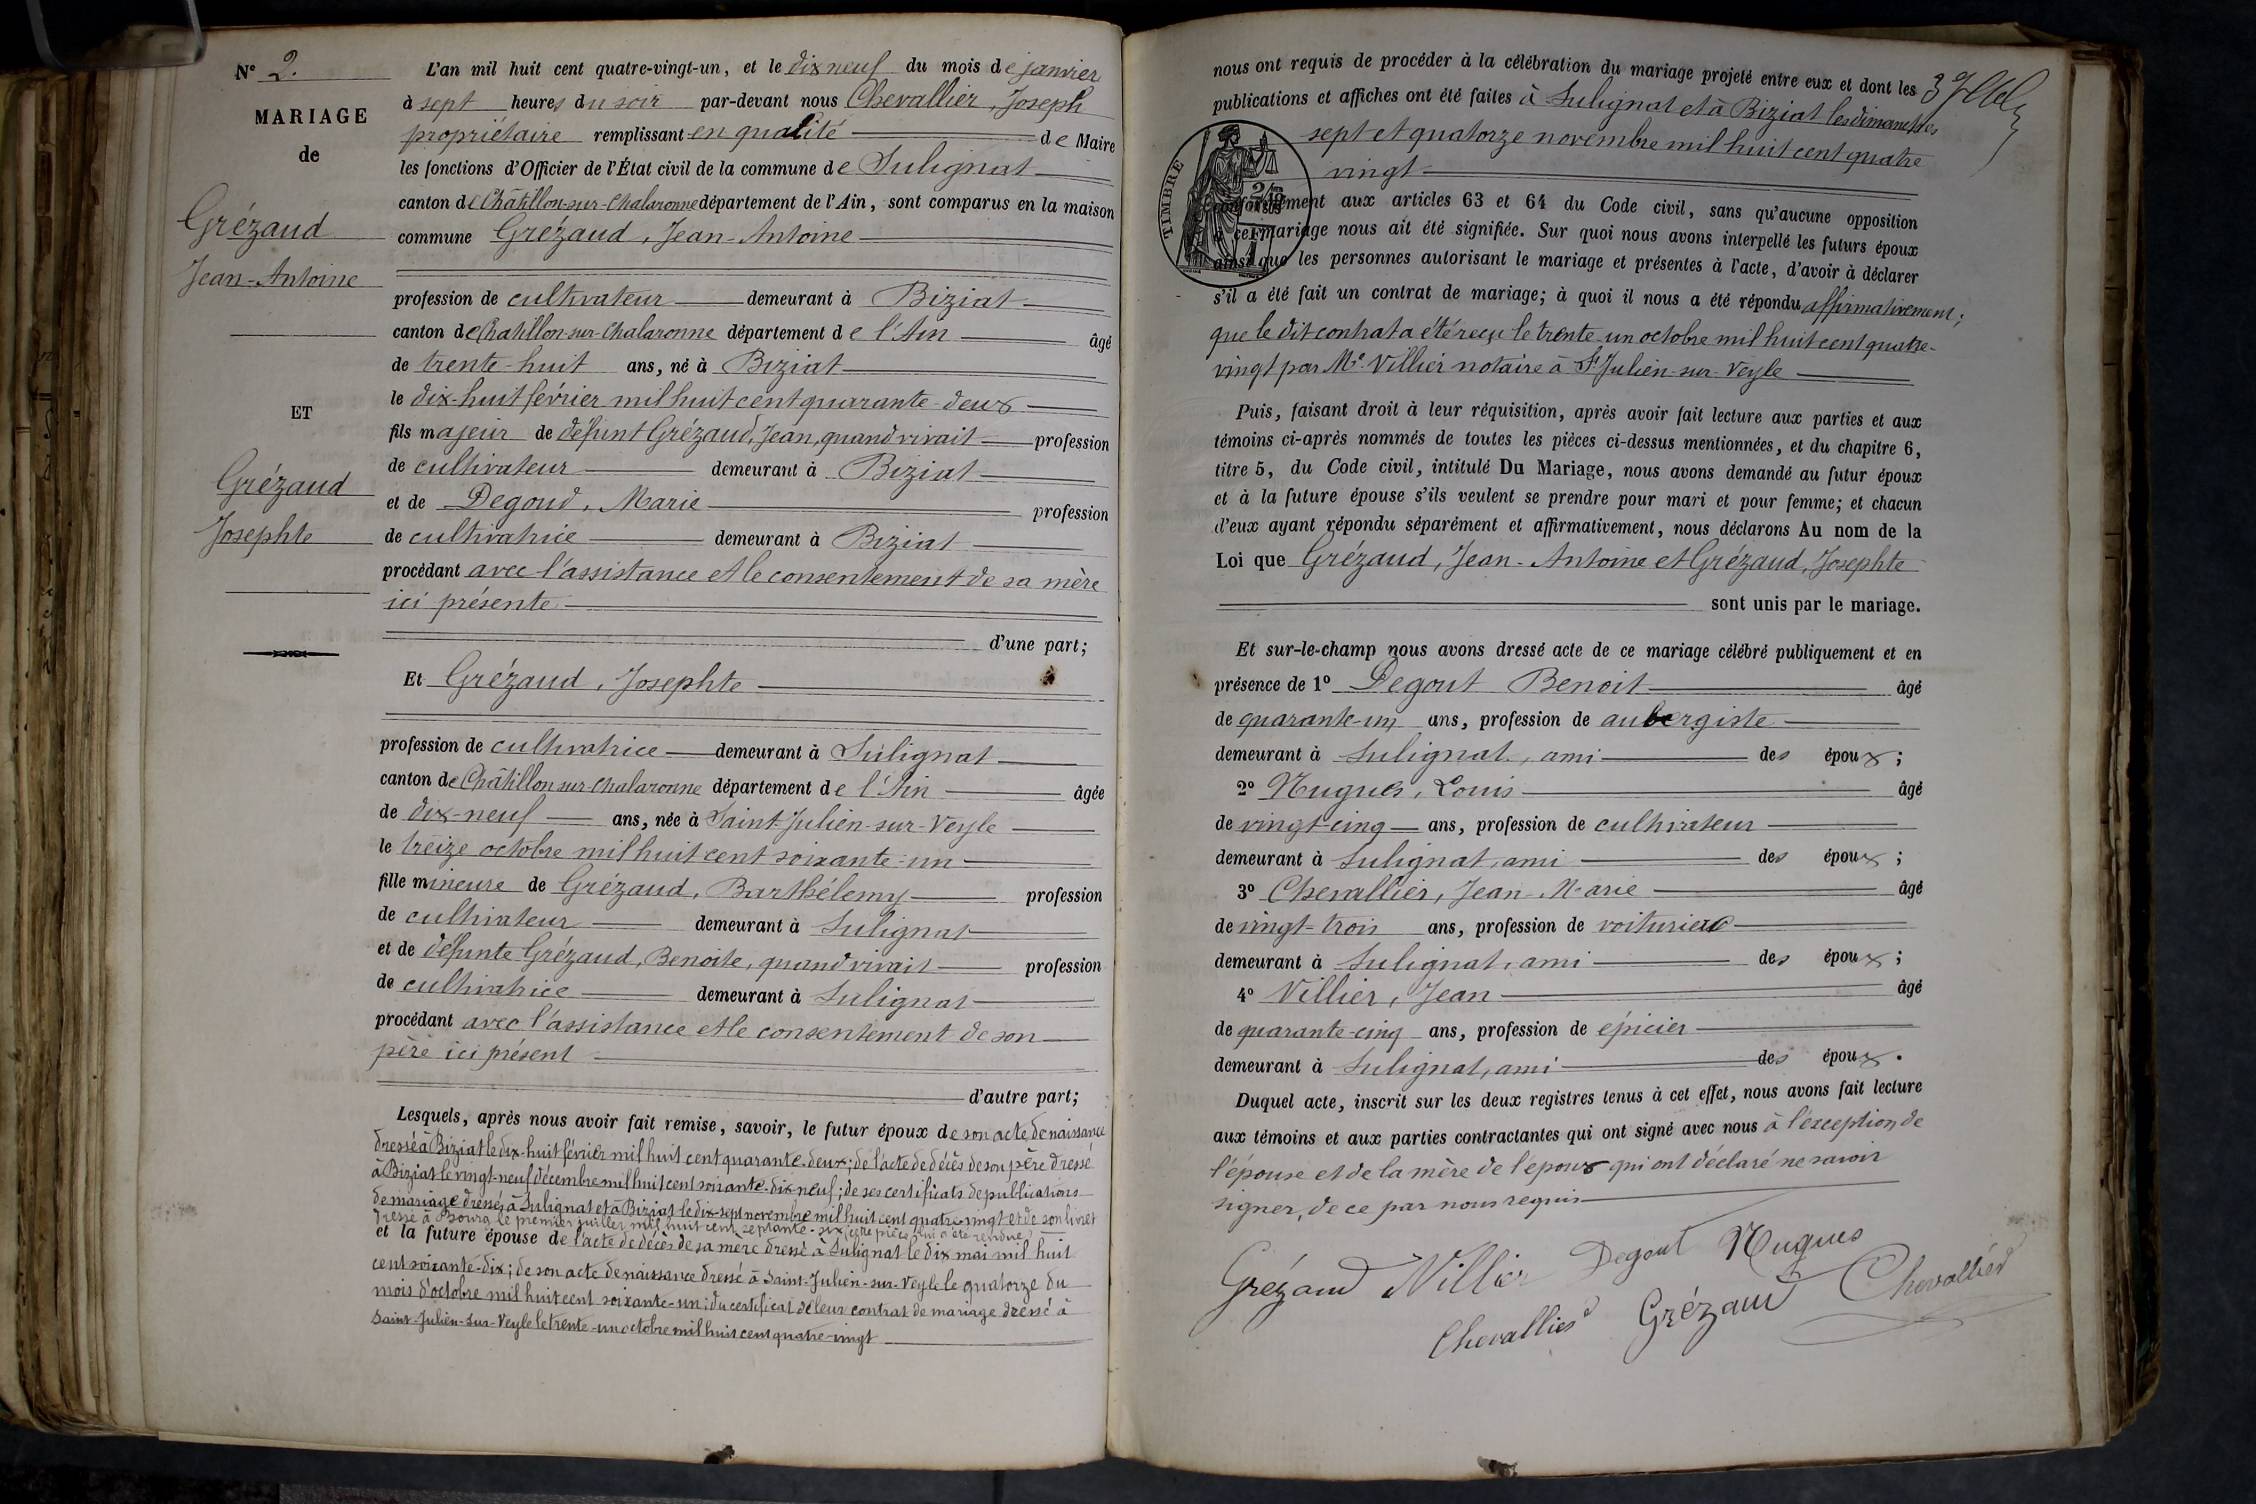 N° 2.
MARIAGE
de
Grézaud
Jean-Antoine
ET
Grézaud
Josephte
L'an mil huit cent quatre-vingt-un, et le dix neuf du mois de janvier
à sept heures du soir par-devant nous Chevallier, Joseph
propriétaire remplissant en qualité de Maire
les fonctions d'Officier de l'État civil de la commune de Sulignat
canton de Châtillon-sur-Chalaronne département de l'Ain, sont comparus en la maison
commune Grézaud, Jean-Antoine
profession de cultivateur demeurant à Biziat
canton de Chatillon-sur-Chalaronne département de l'Ain âgé
de trente-huit ans, né à Biziat
le dix-huit février mil huit cent quarante-deux
fils majeur de défunt Grézaud, Jean, quand vivait profession
de cultivateur demeurant à Biziat
et de Degoud, Marie profession
de cultivatrice demeurant à Biziat
procédant avec l'assistance et le consentement de sa mère
ici présente
d'une part;
Et Grézaud, Josephte
profession de cultivatrice demeurant à Sulignat
canton de Châtillon sur Chalaronne département de l'Ain âgée
de dix-neuf ans, née à Saint-Julien-sur-Veyle
le treize octobre mil huit cent soixante-un
fille mineure de Grézaud, Barthélemy profession
de cultivateur demeurant à Sulignat
et de défunte Grézaud, Benoite, quand vivait profession
de cultivatrice demeurant à Sulignat
procédant avec l'assistance et le consentement de son
père ici présent
d'autre part;
Lesquels, après nous avoir fait remise, savoir, le futur époux de son acte de naissance
dressé à Biziat le dix-huit février mil huit cent quarante-deux; de l'acte de décès de son père dressé
à Biziat le vingt-neuf décembre mil huit cent soixante-dix neuf; de ses certificats de publications
de mariage dressés à Sulignat et à Biziat le dix-sept novembre mil huit cent quatre-vingt et de son livret
dressé à Bourg le premier juillet mil huit cent septante-six (cette pièce lui a été rendue)
et la future épouse de l'acte de décès de sa mère dressé à Sulignat le dix mai mil huit
cent soixante-dix; de son acte de naissance dressé à Saint-Julien-sur-Veyle le quatorze du
mois d'octobre mil huit cent soixante-un; du certificat de leur contrat de mariage dressé à
Saint-Julien-sur-Veyle le trente-un octobre mil huit cent quatre-vingt
nous ont requis de procéder à la célébration du mariage projeté entre eux et dont les
publications et affiches ont été faites à Sulignat et à Biziat les dimanches
sept et quatorze novembre mil huit cent quatre
vingt
TIMBRE
conformément aux articles 63 et 64 du Code civil, sans qu'aucune opposition
à ce mariage nous ait été signifiée. Sur quoi nous avons interpellé les futurs époux
ainsi que les personnes autorisant le mariage et présentes à l'acte, d'avoir à déclarer
s'il a été fait un contrat de mariage; à quoi il nous a été répondu affirmativement;
que le dit contrat a été reçu le trente un octobre mil huit cent quatre-
vingt par Me. Villier notaire à St Julien-sur-Veyle
Puis, faisant droit à leur réquisition, après avoir fait lecture aux parties et aux
témoins ci-après nommés de toutes les pièces ci-dessus mentionnées, et du chapitre 6,
titre 5, du Code civil, intitulé Du Mariage, nous avons demandé au futur époux
et à la future épouse s'ils veulent se prendre pour mari et pour femme; et chacun
d'eux ayant répondu séparément et affirmativement, nous déclarons Au nom de la
Loi que Grézaud, Jean-Antoine et Grézaud, Josephte
sont unis par le mariage.
Et sur-le-champ nous avons dressé acte de ce mariage célébré publiquement et en
présence de 1° Degout Benoit âgé
de quarante-un ans, profession de aubergiste
demeurant à Sulignat, ami des époux;
2° Nugues, Louis âgé
de vingt-cinq ans, profession de cultivateur
demeurant à Sulignat, ami des époux;
3° Chevallier, Jean-Marie âgé
de vingt-trois ans, profession de voiturier
demeurant à Sulignat, ami des époux;
4° Villier, Jean âgé
de quarante-cinq ans, profession de épicier
demeurant à Sulignat, ami des époux.
Duquel acte, inscrit sur les deux registres tenus à cet effet, nous avons fait lecture
aux témoins et aux parties contractantes qui ont signé avec nous à l'exception de
l'épouse et de la mère de l'époux qui ont déclaré ne savoir
signer, de ce par nous requis
Grézaud Villier Degout Nugues
Chevallier Grézaud Chevallier